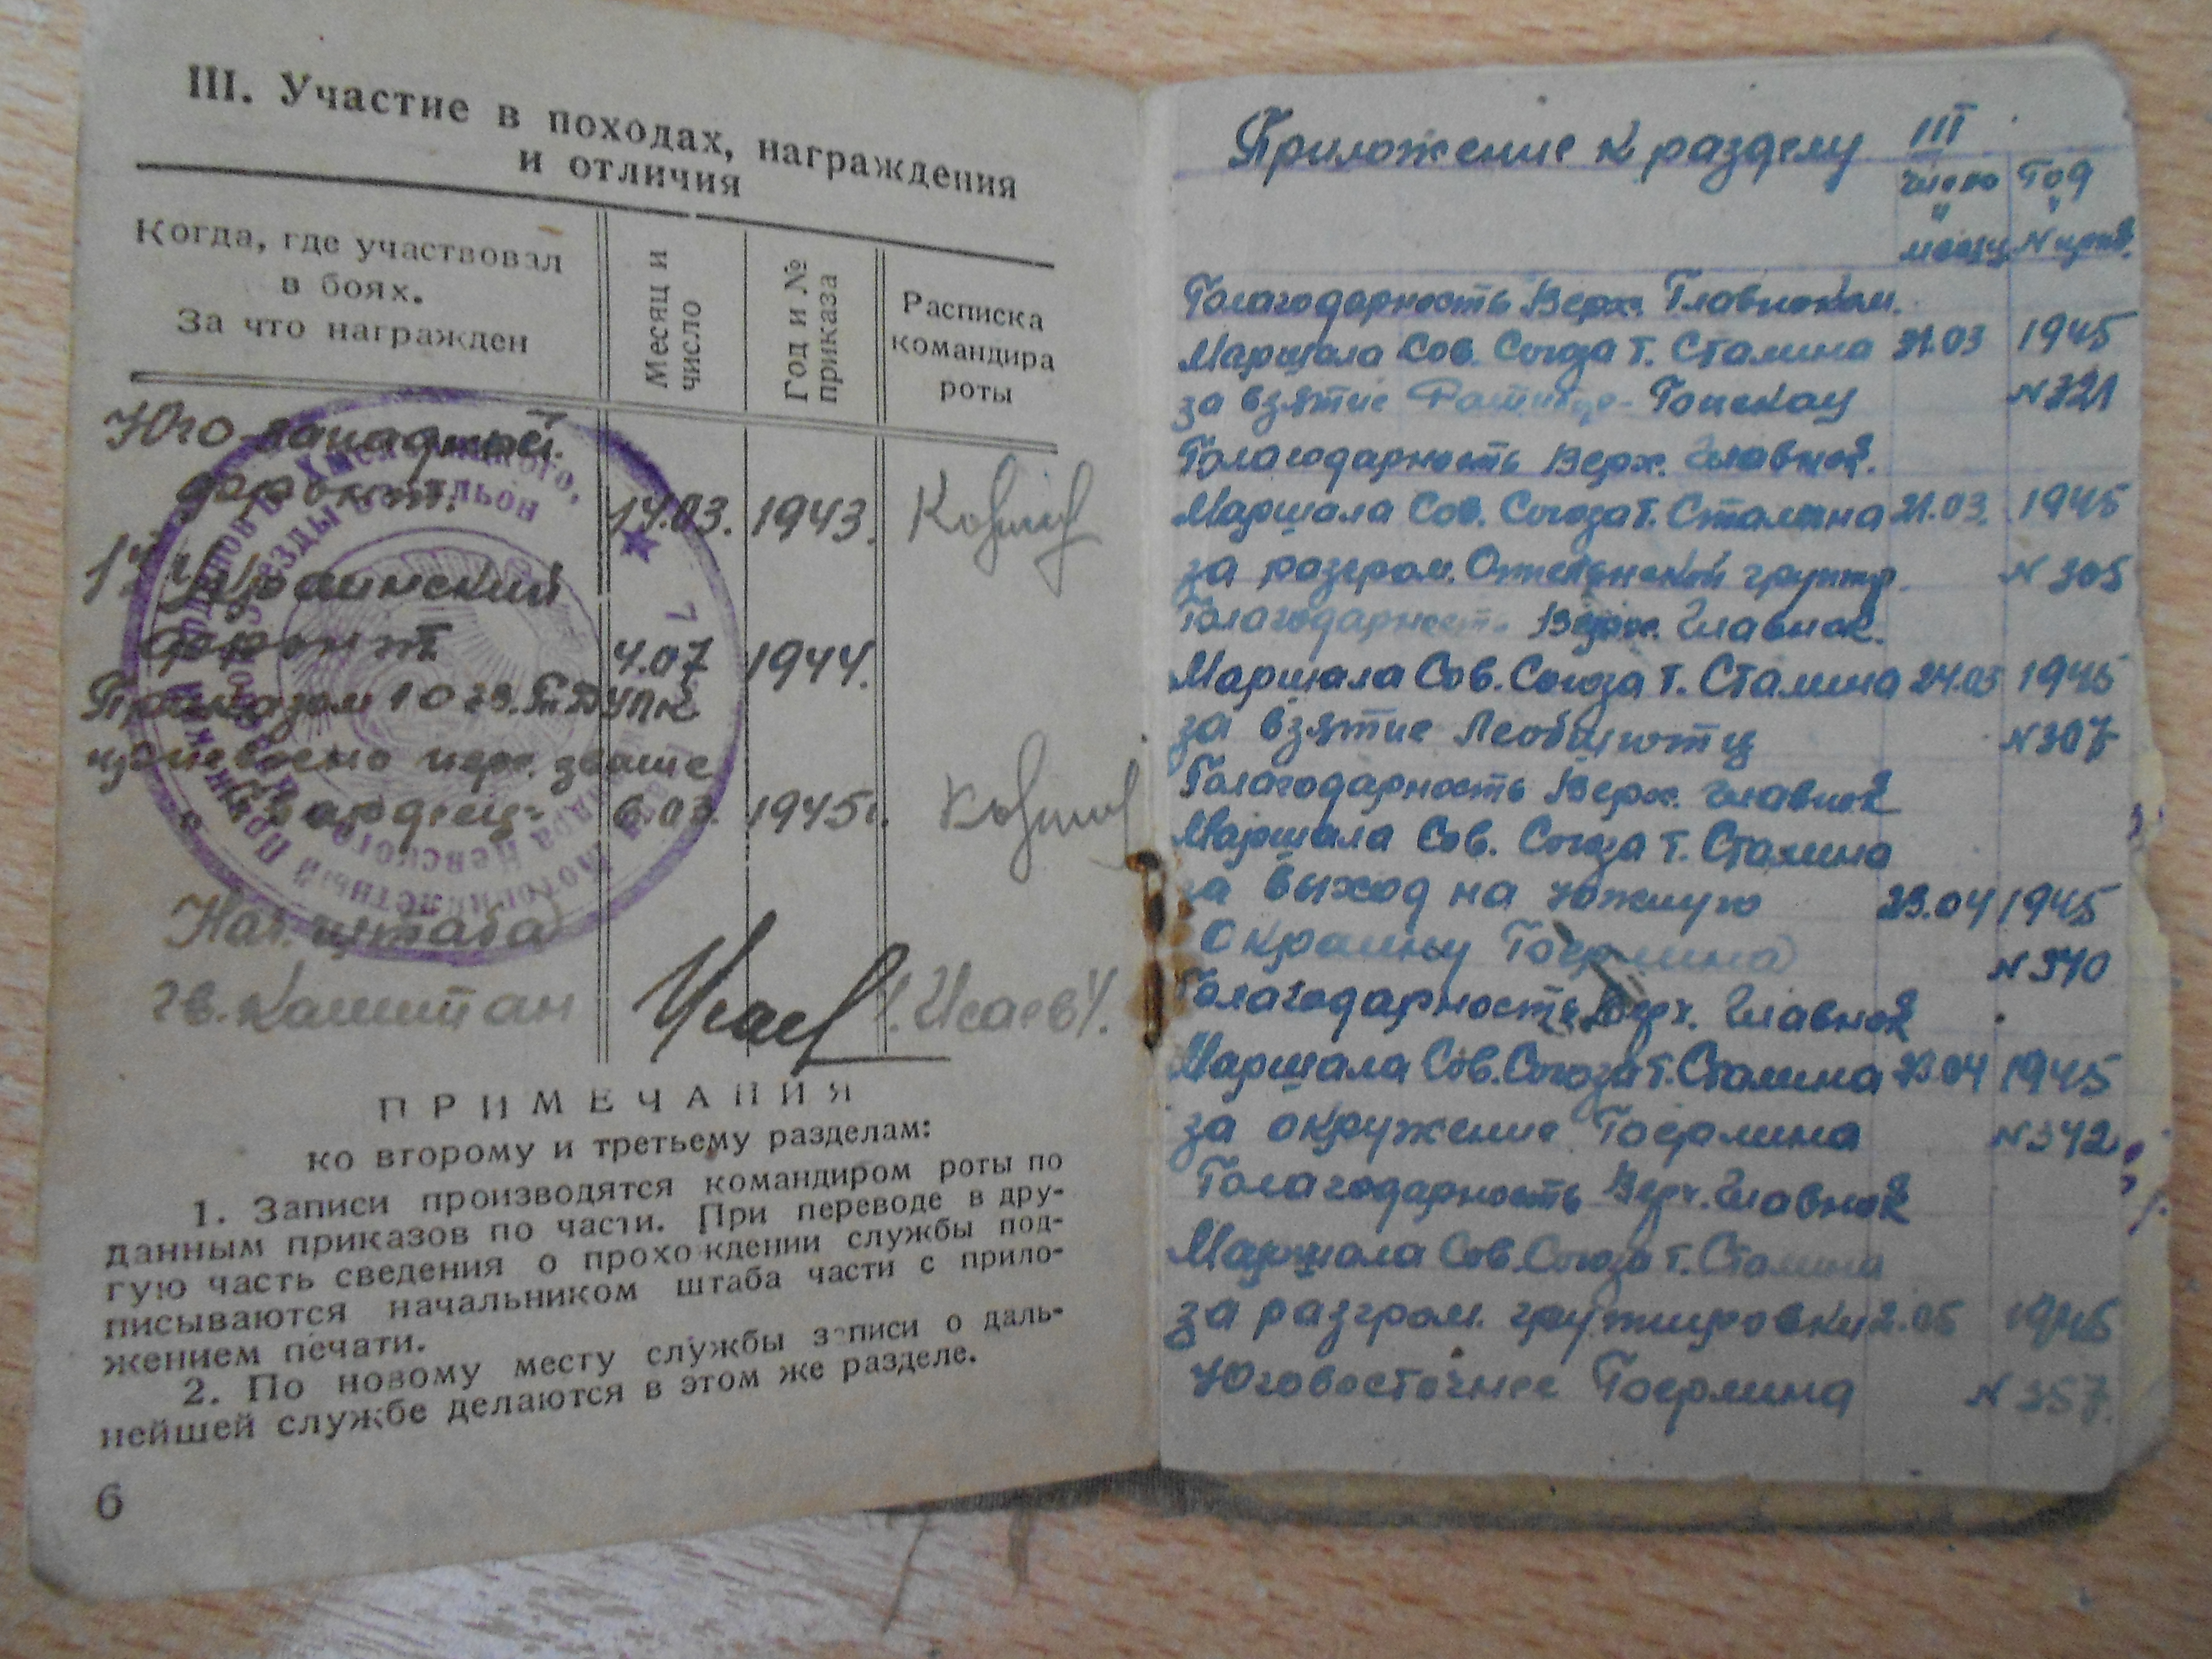 III. Участие в походах, награждения
и отличия
Когда, где участвовал
в боях.
За что награжден
Месяц и
число
Год и №
приказа
Расписка
командира
роты
Юго-западный
фронт. 14.03. 1943.
1й Украинский
фронт 4.07 1944.
Приказом 10 гв.
присвоено звание
"Гвардеец" 6.03. 1945г.
Нач. штаба
гв. Капитан /Исаев/.
ПРИМЕЧАНИЯ
ко второму и третьему разделам:
1. Записи производятся командиром роты по
данным приказов по части. При переводе в дру-
гую часть сведения о прохождении службы под-
писываются начальником штаба части с прило-
жением печати.
2. По новому месту службы записи о даль-
нейшей службе делаются в этом же разделе.
6
Приложение к разделу III
число Год
и
месяц N прик.
Благодарность Верх. Главноком.
Маршала Сов. Союза т. Сталина 31.03 1945
за взятие N 321
Благодарность Верх. Главнок.
Маршала Сов. Союза т. Сталина 21.03. 1945
за разгром. N 305
Благодарность Верх. Главнок.
Маршала Сов. Союза т. Сталина 24.03 1945
за взятие Леобшютц N 307
Благодарность Верх. Главнок
Маршала Сов. Союза т. Сталина
за выход на южную 23.04 1945
окраину Берлина N 340
Благодарность Верх. Главнок
Маршала Сов. Союза т. Сталина 1945
за окружение Берлина N 342
Благодарность Верх. Главнок
Маршала Сов. Союза т. Сталина
за разгром. группировки 2.05 1945
Юговосточнее Берлина N 357.